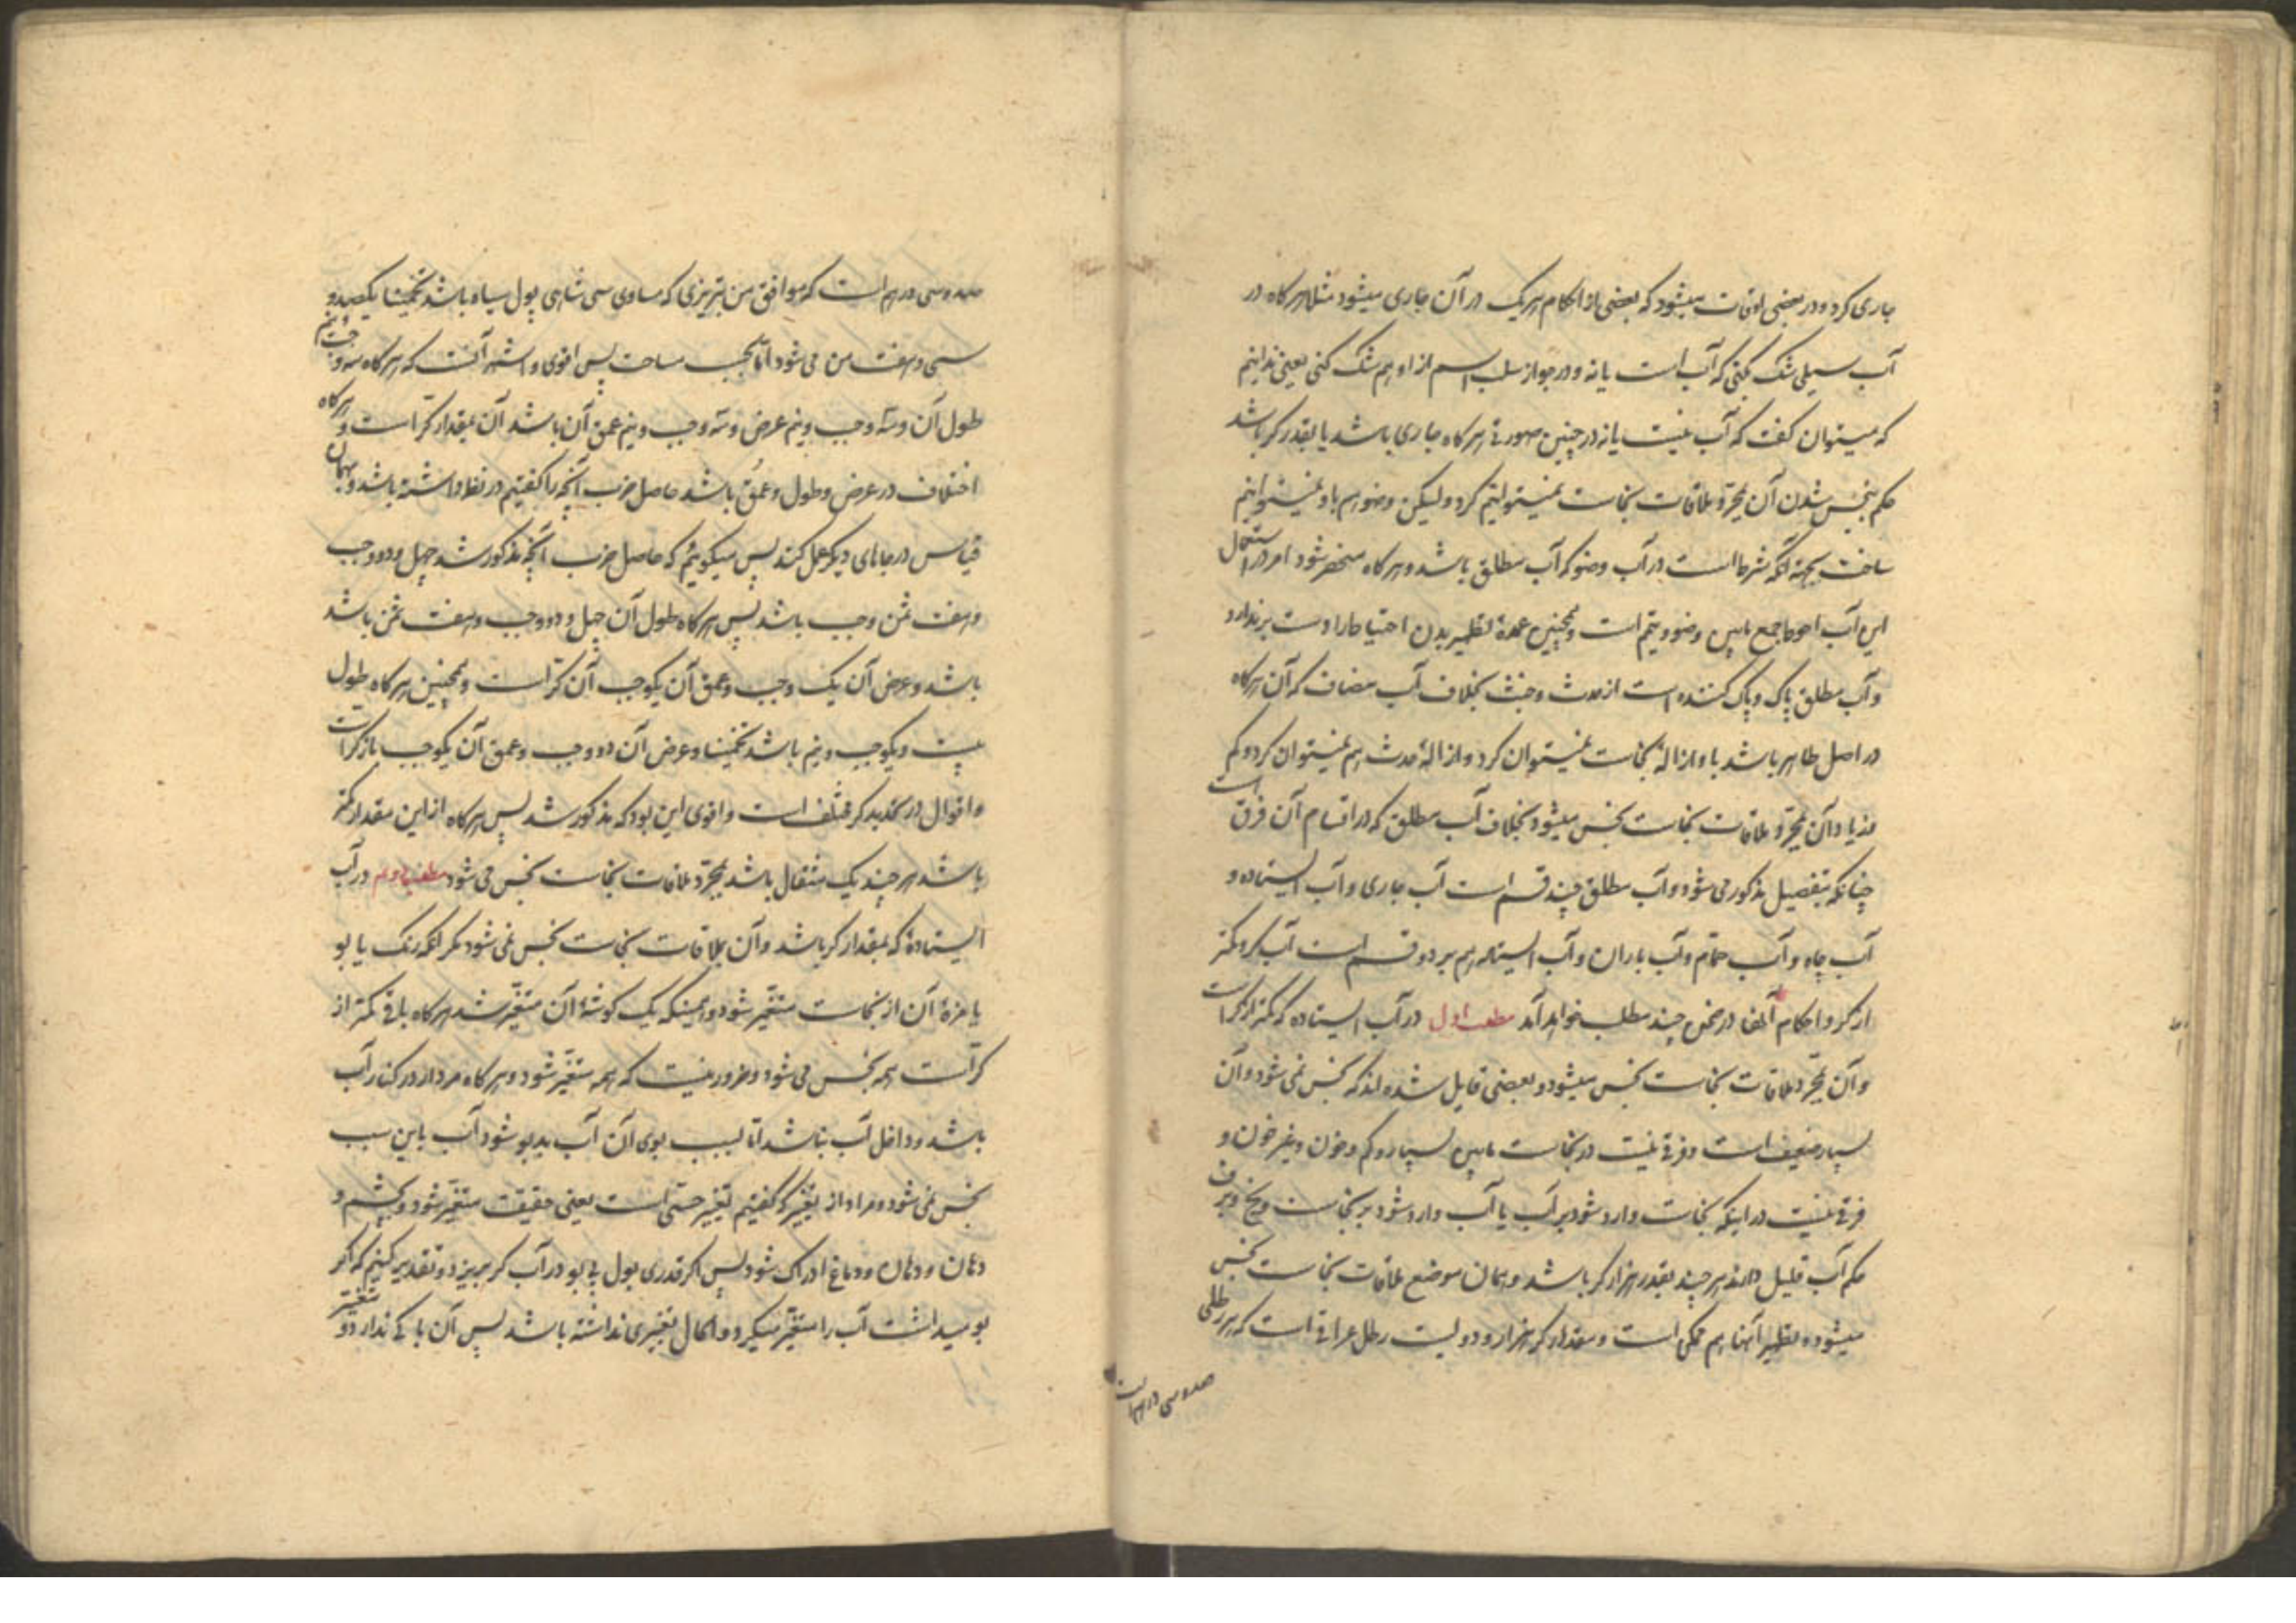 جاری کرد و در بعضی اوقات میشود که بعضی از احکام هر یک در آن جاری میشود مثلا هر کاه در
آب سیلی شک کنی که آب است یا نه و در جواز سلب اسم از او هم شک کنی یعنی ندانیم
که میتوان کفت که آب نیست یا نه در چنین صورتی هر کاه جاری باشد یا بقدر کر باشد
حکم بنجس شدن آن بمجرد ملاقات نجاست نمیتوانیم کرد ولیکن وضو هم باو نمیتوانیم
ساخت بجهة آنکه شرط است در آب وضو که آب مطلق باشد و هر کاه منحصر شود امر در استعمال
این آب احوط جمع مابین وضو و تیمم است و همچنین عمدهٔ تطهیر بدن احتیاط را دست برندارد
و آب مطلق پاک و پاک کننده است از حدث و خبث بخلاف آب مضاف که آن هر کاه
در اصل طاهر باشد باو ازالهٔ نجاست نمیتوان کرد و ازالهٔ حدث هم نمیتوان کرد و کم
و زیاد آن بمجرد ملاقات نجاست نجس میشود بخلاف آب مطلق که در اقسام آن فرق است
چنانکه بتفصیل مذکور می شود و آب مطلق چند قسم است آب جاری و آب ایستاده و
آب چاه و آب حمام و آب باران و آب ایستاده هم بر دو قسم است آب کر و کمتر
از کر و احکام آنها در ضمن چند مطلب خواهد آمد مطلب اول در آب ایستاده که کمتر از کر است
و آن بمجرد ملاقات نجاست نجس میشود و بعضی قایل شده اند که نجس نمی شود و آن
بسیار ضعیف است و فرقی نیست در نجاست مابین بسیار و کم و خون و غیر خون و
فرقی نیست در اینکه نجاست وارد شود بر آب یا آب وارد شود بر نجاست و یخ و برف
حکم آب قلیل دارند هر چند بقدر هزار کر باشد و همان موضع ملاقات نجاست نجس
میشود و تطهیر آنها هم ممکن است و مقدار کر هزار و دویست رطل عراقی است که هر رطلی
صد و سی درهم است
صد و سی درهم است که موافق من تبریزی که مساوی سی شاهی پول سیاه باشد تخمینا یکصد و
سی و هفت من می شود اما بحسب مساحت پس اقوی و اشهر آنست که هر کاه سه وجب و نیم
طول آن و سه وجب و نیم عرض و سه وجب و نیم عمق آن باشد آن بمقدار کر است و هر کاه
اختلاف در عرض و طول و عمق باشد حاصل ضرب آنچه را کفتیم در نظر داشته باشد و بهمان
قیاس در جاهای دیکر عمل کند پس میکوئیم که حاصل ضرب آنچه مذکور شد چهل و دو وجب
و هفت ثمن وجب باشد پس هر کاه طول آن چهل و دو وجب و هفت ثمن باشد
باشد و عرض آن یک وجب و عمق آن یکوجب آن کر است و همچنین هر کاه طول
بیست و یکوجب و نیم باشد تخمینا و عرض آن دو وجب و عمق آن یکوجب باز کر است
و اقوال در تحدید کر مختلف است و اقوی این بود که مذکور شد پس هر کاه از این مقدار کمتر
باشد هر چند یک مثقال باشد بمجرد ملاقات نجاست نجس می شود مطلب دوم در آب
ایستادهٔ که بمقدار کر باشد و آن بملاقات نجاست نجس نمی شود مکر آنکه رنک یا بو
یا مزهٔ آن از نجاست متغیر شود و همینکه یک کوشهٔ آن متغیر شد هر کاه باقی کمتر از
کر است همه نجس می شود و ضرور نیست که همه متغیر شود و هر کاه مردار در کنار آب
باشد و داخل آب نباشد اما بسبب بوی آن آب بدبو شود آب باین سبب
نجس نمی شود و مراد از تغیر که کفتیم تغیر حسی است یعنی حقیقت متغیر شود و بچشم و
دهان و دماغ ادراک شود پس اکر قدری بول بی بو در آب کر بریزد و تقدیر کنیم که اکر
بو میداشت آب را متغیر میکرد و الحال تغییری نداشته باشد پس آن باکی ندارد و تغییر